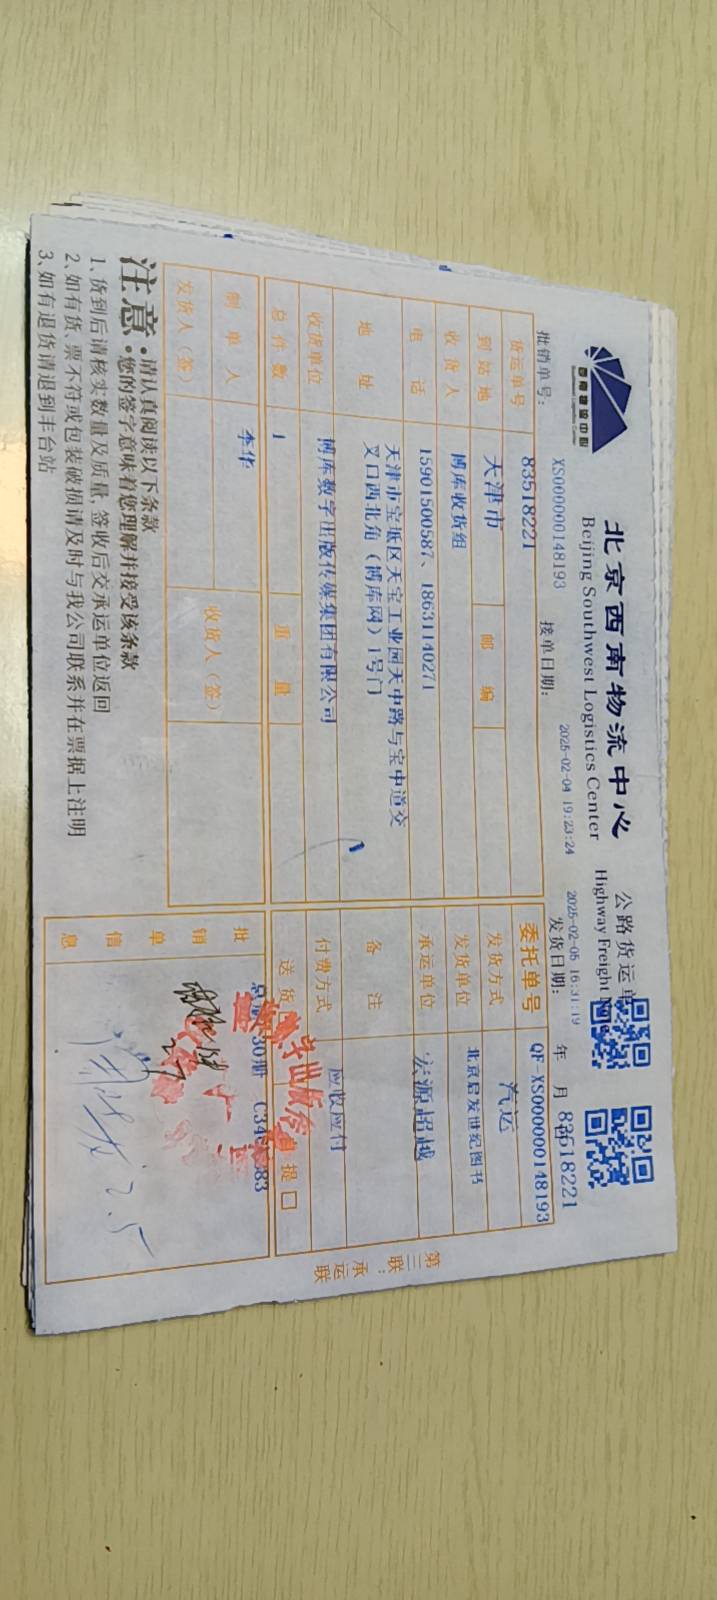 西南物流中心
Southwest Logistics Center
北京西南物流中心 公路货运单
Beijing Southwest Logistics Center Highway Freight Note
批销单号： XS000000148193 接单日期： 2025-02-04 19:23:24 发货日期： 年 月 日
2025-02-05 16:31:19
83518221
货运单号 83518221 委托单号 QF-XS000000148193
到站地 天津市 邮编 发货方式 汽运
收货人 博库收货组 发货单位 北京启发世纪图书
电话 15901500587、18631140271 承运单位 宏源超越
地址 天津市宝坻区天宝工业园天中路与宝中道交
叉口西北角（博库网）1号门
备注
收货单位 博库数字出版传媒集团有限公司 付费方式 应收应付
总件数 1 重量 送货 自提 □
制单人 李华 收货人（签）
发货人（签）
批销单信息 30册
2.5
第三联：承运联
注意：请认真阅读以下条款
您的签字意味着您理解并接受该条款
1、货到后请核实数量及质量，签收后交承运单位返回
2、如有货、票不符或包装破损请及时与我公司联系并在票据上注明
3、如有退货请退到丰台站